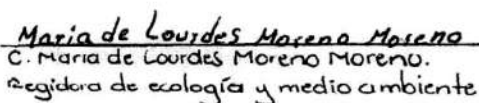 Maria de Lourdes Moreno Moreno
C. Maria de Lourdes Moreno Moreno.
Regidora de ecología y medio ambiente